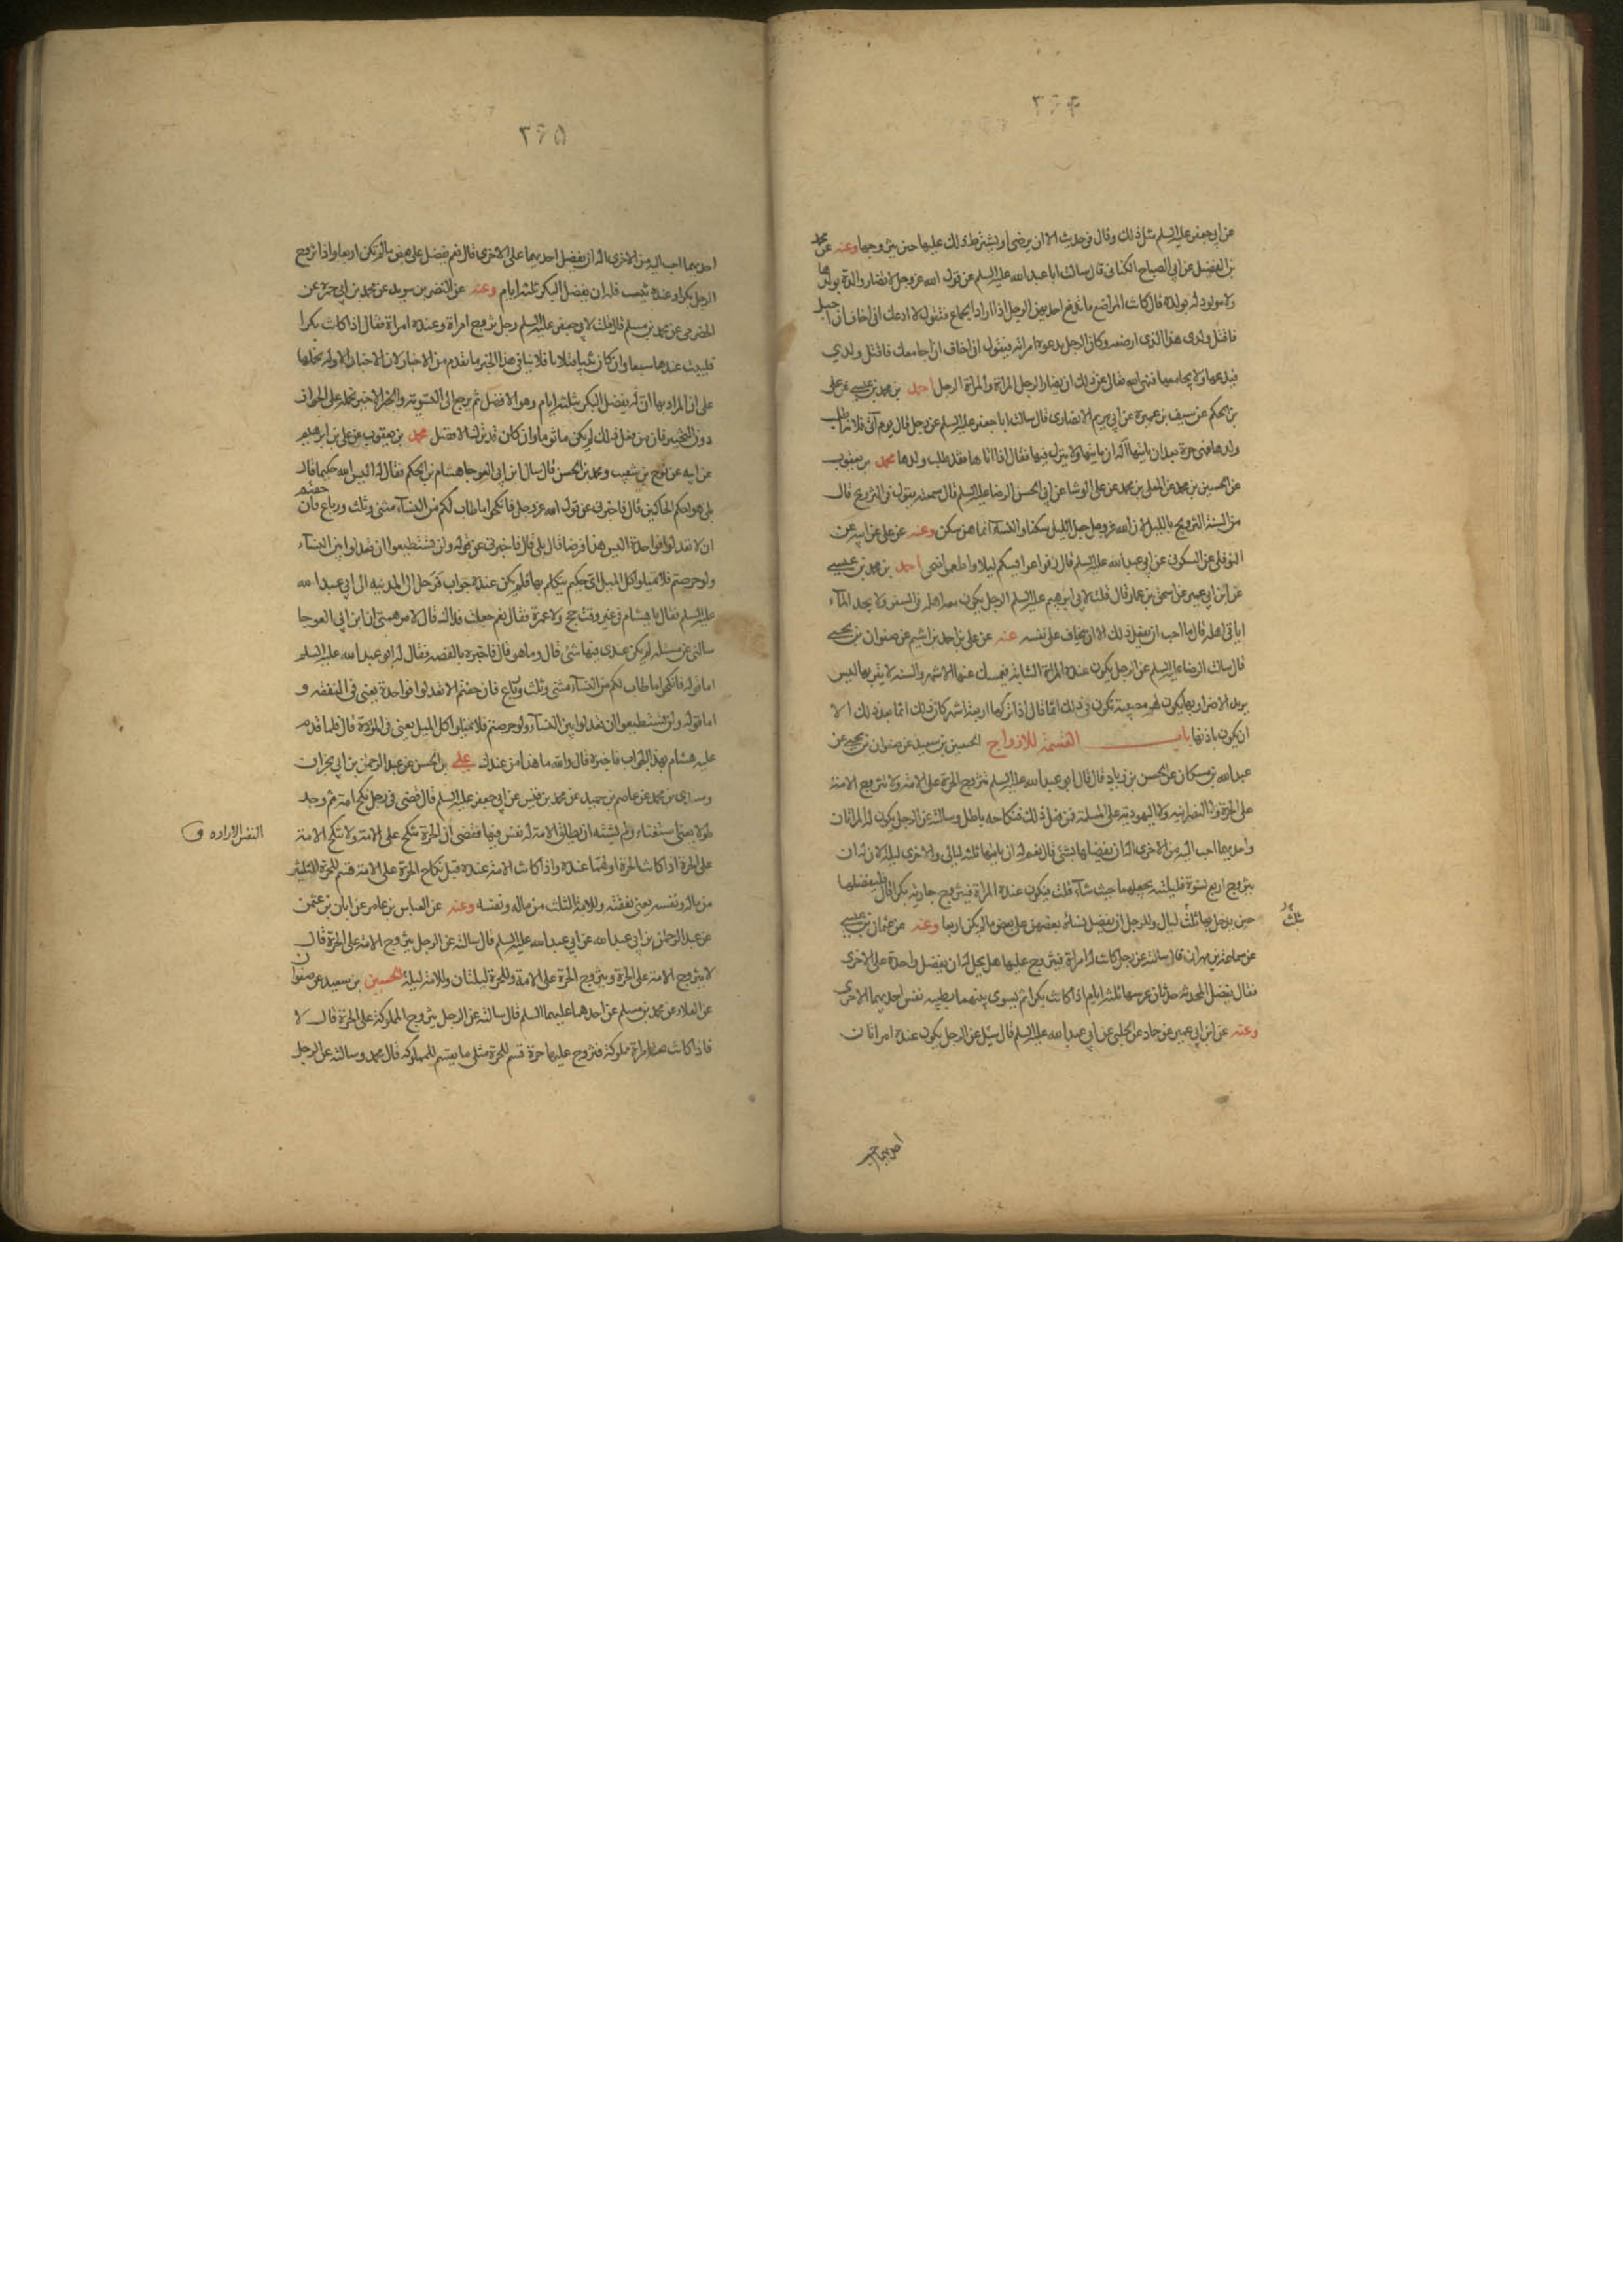 ٣٦۴
عن ابي جعفر عليه السلم مثل ذلك وقال في حديث الا ان يرضى او يشترط ذلك عليها حين يتزوجها وعنه عن محمد
بن الفضيل عن ابي الصباح الكناني قال سالت ابا عبدالله عليه السلم عن قول الله عز وجل لا تضار والدة بولدها
ولا مولود له بولده قال كانت المراضع مما تدفع احديهن الرجل اذا اراد الجماع فتقول لا ادعك اني اخاف ان احبل
فاقتل ولدي هذا الذي ارضعه وكان الرجل تدعوه امراته فيقول اني اخاف ان اجامعك فاقتل ولدي
فيدعها ولا يجامعها فنهى الله تعالى عن ذلك ان يضار الرجل المراة والمراة الرجل احمد بن محمد بن عيسى عن علي
بن الحكم عن سيف بن عميرة عن ابي مريم الانصاري قال سالت ابا جعفر عليه السلم عن رجل قال يوم آتي فلانة اطلب
ولدها فهي حرة بعد ان ياتيها أله ان ياتيها ولا ينزل فيها فقال اذا اتاها فقد طلب ولدها محمد بن يعقوب
عن الحسين بن محمد عن المعلى بن محمد عن علي الوشا عن ابي الحسن الرضا عليه السلم قال سمعته يقول في التزويج قال
من السنة التزويج بالليل لان الله عز وجل جعل الليل سكنا والنساء انما هن سكن وعنه عن علي عن ابيه عن
النوفلي عن السكوني عن ابي عبدالله عليه السلم قال زفوا عرايسكم ليلا واطعموا ضحى احمد بن محمد بن عيسى
عن ابن ابي عمير عن اسحق بن عمار قال قلت لابي ابرهيم عليه السلم الرجل يكون معه اهله في السفر ولا يجد الماء
اياتي اهله قال ما احب ان يفعل ذلك الا ان يخاف على نفسه عنه عن علي بن احمد بن اشيم عن صفوان بن يحيى
قال سالت الرضا عليه السلم عن الرجل يكون عنده المراة الشابة فيمسك عنها الاشهر والسنة لا يقربها ليس
يريد الاضرار بها يكون لهم مصيبة يكون في ذلك اثما قال اذا تركها اربعة اشهر كان ذلك اثما بعد ذلك الا
ان يكون باذنها باب القسمة للازواج الحسين بن سعيد عن صفوان بن يحيى عن
عبدالله بن مسكان عن الحسن بن زياد قال قال ابو عبدالله عليه السلم تتزوج الحرة على الامة ولا تتزوج الامة
على الحرة ولا النصرانية ولا اليهودية على المسلمة فمن فعل ذلك فنكاحه باطل وسالته عن الرجل يكون له المراتان
واحديهما احب اليه من الاخرى اله ان يفضلها بشئ قال نعم له ان ياتيها ثلثة ليالي والاخرى ليلة لان له ان
يتزوج اربع نسوة فليلتيه يجعلهما حيث شاء قلت فيكون عنده المراة فيتزوج جارية بكرا قال فليفضلها
حين يدخل بها ثلث ليال وللرجل ان يفضل نساءه بعضهن على بعض ما لم يكن اربعا وعنه عن عثمان بن عيسى
عن سماعة بن مهران قال سالته عن رجل كانت له امراة فيتزوج عليها هل يحل له ان يفضل واحدة على الاخرى
فقال يفضل المحدثة حدثان عرسها ثلثة ايام اذا كانت بكرا ثم يسوى بينهما بطيبة نفس احديهما الاخرى
وعنه عن ابن ابي عمير عن حماد عن الحلبي عن ابي عبدالله عليه السلم قال سئل عن الرجل يكون عنده امراتان
ثلث
احديهما احب
٣٦۵
احديهما احب اليه من الاخرى اله ان يفضل احديهما على الاخرى قال نعم يفضل على بعض ما لم تكن اربعا واذا تزوج
الرجل بكرا وعنده ثيب فله ان يفضل البكر ثلثة ايام وعنه عن النضر بن سويد عن محمد بن ابي حمزة عن
الحضرمي عن محمد بن مسلم قال قلت لابي جعفر عليه السلم رجل تزوج امراة وعنده امراة فقال اذا كانت بكرا
فليبت عندها سبعا وان كان ثيبا فثلاثا فلا ينافي هذا الخبر ما تقدم من الاخبار لان الاخبار الاوله نحملها
على ان المراد بها انه يفضل البكر بثلثة ايام وهو الافضل ثم يرجع الى التسوية والخبر الاخير نحمله على الجواز
دون التخيير فان من فعل ذلك لم يكن ماثوما وان كان قد ترك الافضل محمد بن يعقوب عن علي بن ابرهيم
عن ابيه عن نوح بن شعيب ومحمد بن الحسن قال سال ابن ابي العوجا هشام بن الحكم فقال له اليس الله حكيما قال
بلى هو احكم الحاكمين قال فاخبرني عن قول الله عز وجل فانكحوا ما طاب لكم من النساء مثنى وثلث ورباع فان خفتم
ان لا تعدلوا فواحدة اليس هذا فرضا قال بلى قال فاخبرني عن قوله ولن تستطيعوا ان تعدلوا بين النساء
ولو حرصتم فلا تميلوا كل الميل اي حكيم يتكلم بهذا فلم يكن عنده جواب فرحل الى المدينة الى ابي عبدالله
عليه السلم فقال يا هشام في غير وقت حج ولا عمرة فقال نعم جعلت فداك قال لامر همني ان ابن ابي العوجا
سالني عن مسئلة لم يكن عندي فيها شئ قال وما هو قال فاخبره بالقصة فقال له ابو عبدالله عليه السلم
اما قوله فانكحوا ما طاب لكم من النساء مثنى وثلث ورباع فان خفتم الا تعدلوا فواحدة يعني في النفقة و
اما قوله ولن تستطيعوا ان تعدلوا بين النساء ولو حرصتم فلا تميلوا كل الميل يعني في المودة قال فلما قدم
عليه هشام بهذا الجواب فاخبره قال والله ما هذا من عندك علي بن الحسن عن عبد الرحمن بن ابي نجران
وسندي بن محمد عن عاصم بن حميد عن محمد بن قيس عن ابي جعفر عليه السلم قال قضى في رجل نكح امة ثم وجد
طولا يعني استغناء ولم يشته ان يطلق الامة له نفس فيها فقضى ان الحرة تنكح على الامة ولا تنكح الامة
على الحرة اذا كانت الحرة اولهما عنده واذا كانت الامة عنده قبل نكاح الحرة على الامة قسم للحرة الثلثين
من ماله ونفسه يعني نفقته وللامة الثلث من ماله ونفسه وعنه عن العباس بن عامر عن ابان بن عثمن
عن عبد الرحمن بن ابي عبدالله عن ابي عبدالله عليه السلم قال سالته عن الرجل يتزوج الامة على الحرة قال
لا يتزوج الامة على الحرة ويتزوج الحرة على الامة وللحرة ليلتان وللامة ليلة الحسين بن سعيد عن صفوان
عن العلاء عن محمد بن مسلم عن احدهما عليهما السلم قال سالته عن الرجل يتزوج المملوكة على الحرة قال لا
فاذا كانت تحته امراة مملوكة فتزوج عليها حرة قسم للحرة مثلي ما يقسم للمملوكة قال محمد وسالته عن الرجل
النفس الارادة ق